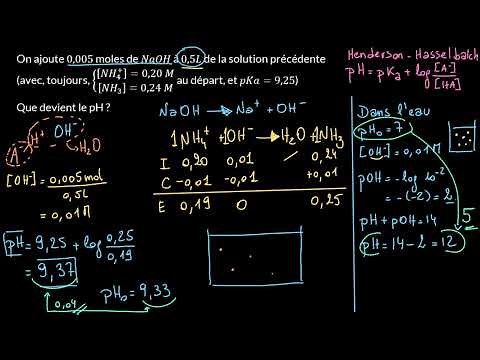 On ajoute 0,005 moles de NaOH à 0,5L de la solution précédente
(avec, toujours, {[NH₄⁺] = 0,20 M
[NH₃] = 0,24 M au départ, et pKa = 9,25)
Que devient le pH ?
Henderson - Hasselbalch
pH = pKa + log [A⁻]/[HA]
NaOH → Na⁺ + OH⁻
A⁻ H⁺ OH⁻
H₂O
[OH⁻] = 0,005 mol / 0,5L
= 0,01 M
1NH₄⁺ + 1OH⁻ → H₂O + 1NH₃
I 0,20 0,01 / 0,24
C -0,01 -0,01 +0,01
E 0,19 0 0,25
pH = 9,25 + log 0,25/0,19
= 9,37
0,04
pH₀ = 9,33
Dans l'eau
pH₀ = 7
[OH⁻] = 0,01 M
pOH = -log 10⁻²
= -(-2) = 2
pH + pOH = 14
5
pH = 14 - 2 = 12